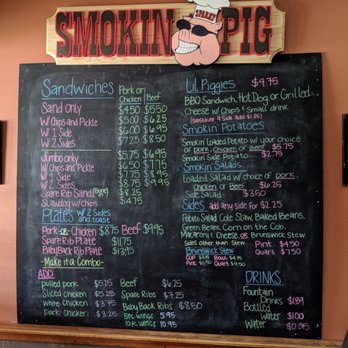 SPARKY
SMOKIN PIG
Sandwiches Pork or Chicken Beef
Sand Only $4.50 $5.50
W Chips and Pickle $5.00 $6.25
W 1 Side $6.00 $6.95
W 2 Sides $7.25 $8.50
Jumbo only $5.75 $6.95
W Chips and Pickle $6.50 $7.75
W 1 Side $7.75 $8.95
W 2 Sides $8.75 $9.95
Spare Rib Sand (Bone) $8.25
Slawdog w/ chips $4.75
Plates W 2 Sides and toast
Pork or Chicken $8.75 Beef $9.95
Spare Rib Plate $11.75
Baby Back Rib Plate $13.95
Make it a Combo
ADD:
pulled Pork $5.25 Beef $6.25
Sliced Chicken $5.25 Spare Ribs $7.25
White Chicken $3.75 Baby Back Ribs $8.50
Dark Chicken $3.25 5pc wings 5.95
10pc wings 10.95
Lil Piggies $4.75
BBQ Sandwich, Hot Dog, or Grilled
Cheese w/ Chips & Small drink
(Substitute a Side add $1.25)
Smokin Potatoes
Smokin Loaded Potato w/ your choice
of pork, Chicken or Beef
Smokin Side Potato $2.75
Smokin Salads
Loaded Salad w/ choice of pork,
Chicken or Beef
Side Salad
Sides add any side for $2.25
Potato Salad, Cole Slaw, Baked Beans,
Green Beans, Corn on the Cob,
Macaroni & Cheese or Brunswick Stew
Sides other than Stew Pint $4.50
Quart $7.50
Brunswick Stew
DRINKS
Fountain Drinks $1.89
Bottled Water $1.00
Water